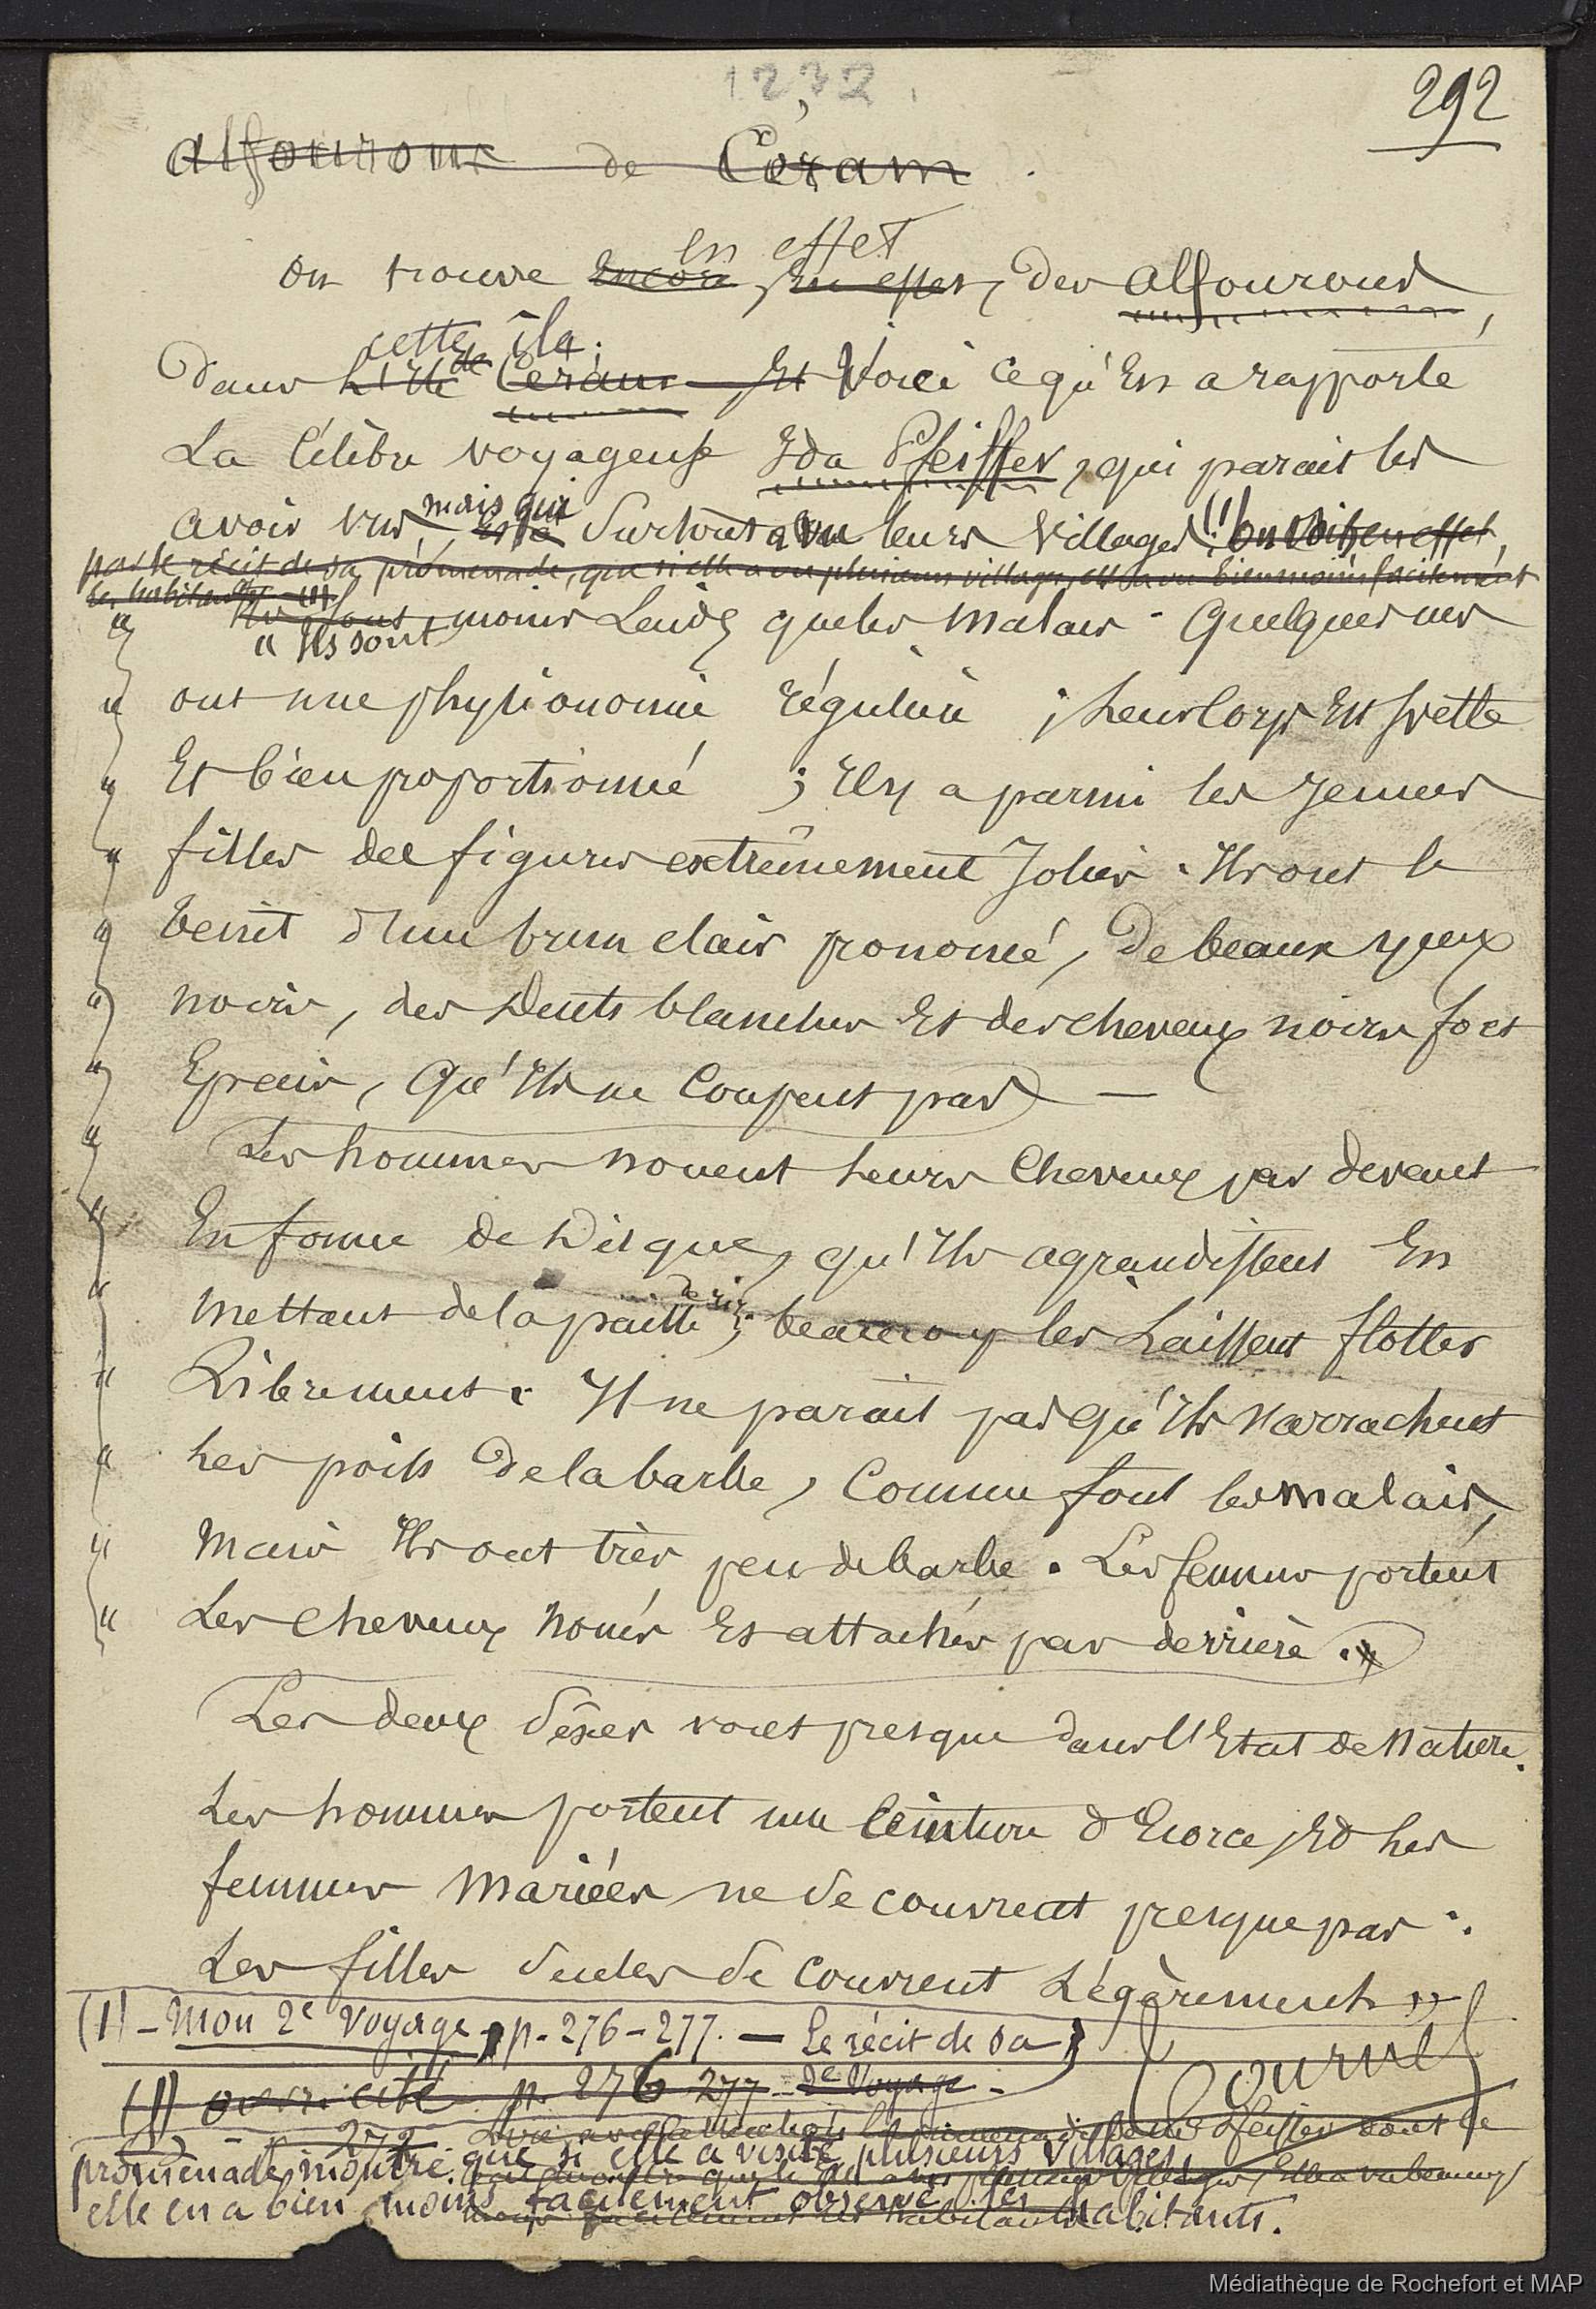 1232
292
Alfourous de Céram.
en effet
On trouve encore, en effet, des Alfourous,
cette île.
dans l'île de Céram et Voici ce qu'en a rapporté
La célèbre voyageuse Ida Pfeiffer, qui parait les
mais qui
avoir vus, surtout a vu leurs villages (1) on voit, en effet,
par le récit de sa promenade, que si elle a vu plusieurs villages, elle a vu bien moins facilement
les habitants
Ils sont moins Laids que les malais. Quelques uns
" Ils sont
" ont une physionomie régulière ; Leur corps est svelte
" Et bien proportionné ; Il y a parmi les jeunes
" filles des figures extrêmement jolies. Ils ont le
" teint d'un brun clair prononcé, de beaux yeux
" noirs, des Dents blanches Et des cheveux noirs fort
" Epais, Qu'Ils ne Coupent pas —
" Les hommes nouent Leurs Cheveux par devant
" En forme de Disque, qu'Ils agrandissent En
de riz
" mettant de la paille ; beaucoup les Laissent flotter
" Librement. Il ne parait pas qu'Ils s'arrachent
" Les poils de la barbe, Comme font les malais,
" mais Ils ont très peu de barbe. Les femmes portent
" Les Cheveux noués Et attachés par derrière. "
Les deux sexes vont presque dans l'Etat de nature.
Les hommes portent une Ceinture d'Ecorce, Et Les
femmes mariées ne se couvrent presque pas.
Les filles seules se couvrent Légèrement »
(1) - Mon 2e Voyage, p. 276-277. — Le récit de sa
(1) ouvr. cité p. 276 277 - 2e Voyage -
Tournel
p. 272
promenade, montre que si elle a visité plusieurs villages
elle en a bien moins facilement observé les habitants.
Médiathèque de Rochefort et MAP